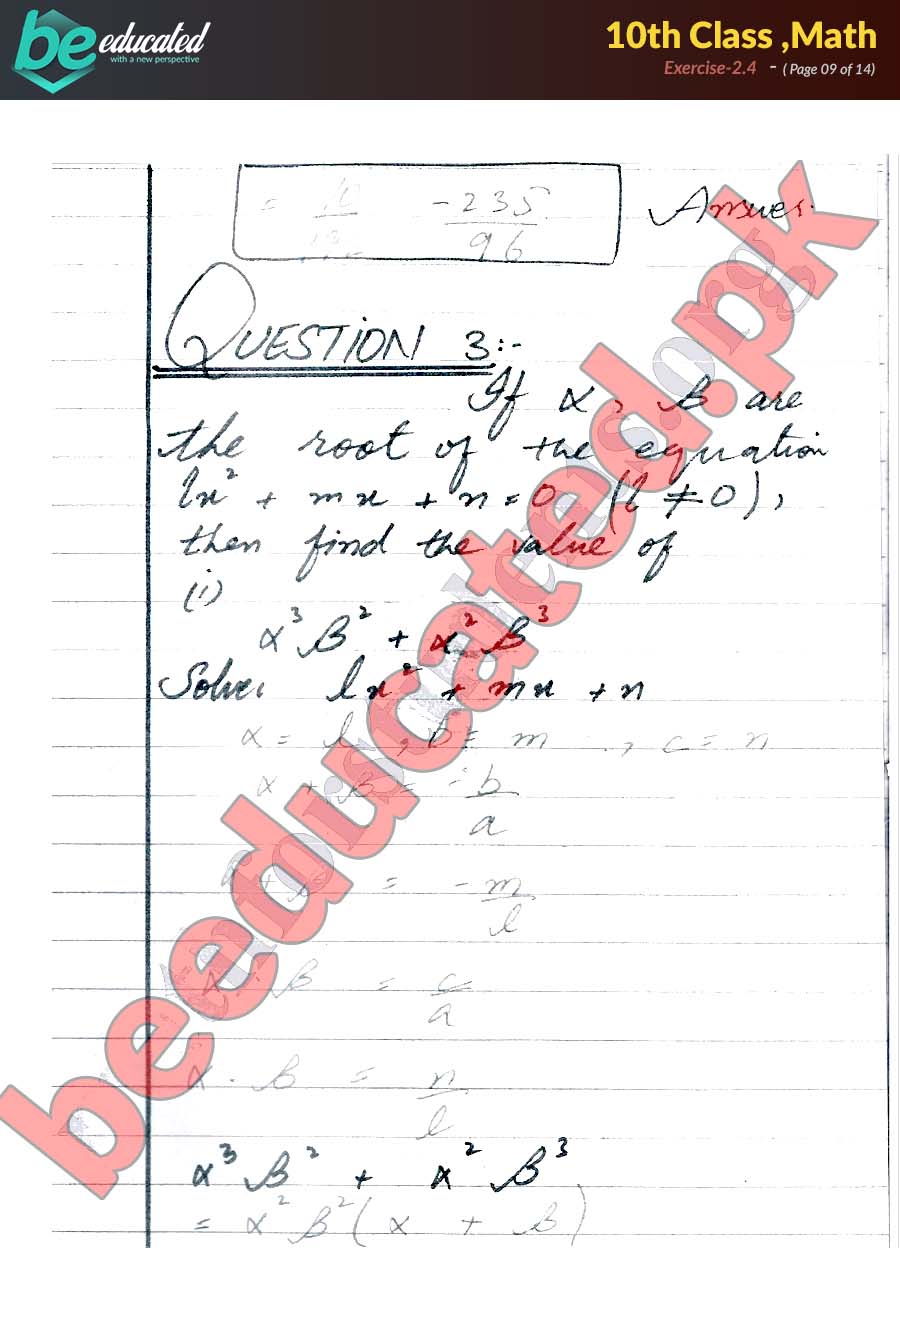 be educated
with a new perspective
10th Class ,Math
Exercise-2.4 - ( Page 09 of 14)
= -235/96 Answer.
QUESTION 3:-
If α, β are
the root of the equation
lx² + mx + n = 0 (l ≠ 0),
then find the value of
(i)
α³β² + α²β³
Solve: lx² + mx + n
α = l , b = m , c = n
α + β = -b/a
α + β = -m/l
α . β = c/a
α . β = n/l
α³β² + α²β³
= α²β²(α + β)
beeducated.pk